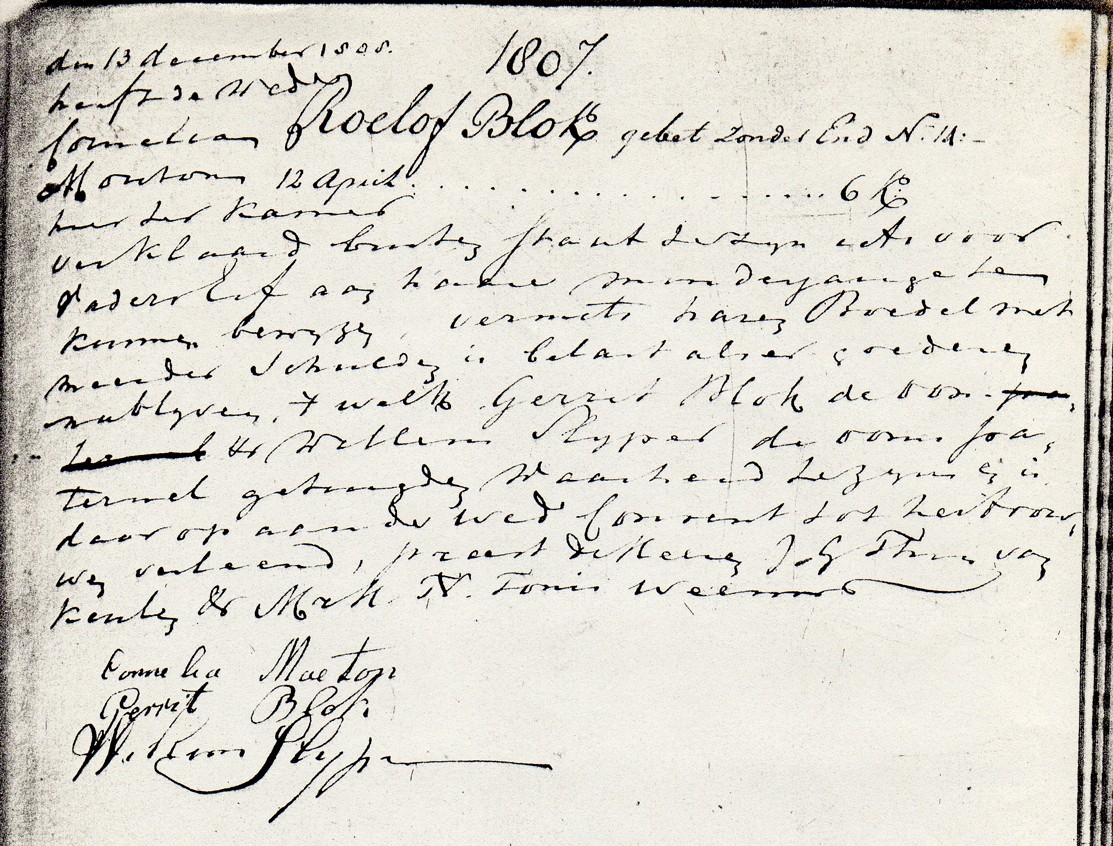 1807.
den 13 december 1808.
heeft de Wed
Cornelia Roelof Blok gebet zonder End N: 14:
Mouton 12 April . . . . . . . . . . . . . . . . . . . . 6 K:
ter kamer
verklaard buiten staat te zyn iets voor
Vaders Erf aan haare minderjarige te
kunnen bewyzen, vermits haren Boedel met
meerder Schulden is belast als er goederen
nablyven, 't welk Gerrit Blok de oom
& Willem Slyper de oom pa,
ternel getuigden Waarheid te zyn en is
daar op aan de Wed Consent tot hertrou,
wen verleend, praest de Heeren J. G van
Keulen & Mr H. N.
Cornelia Moeton
Gerrit Blok
Willem Slyper